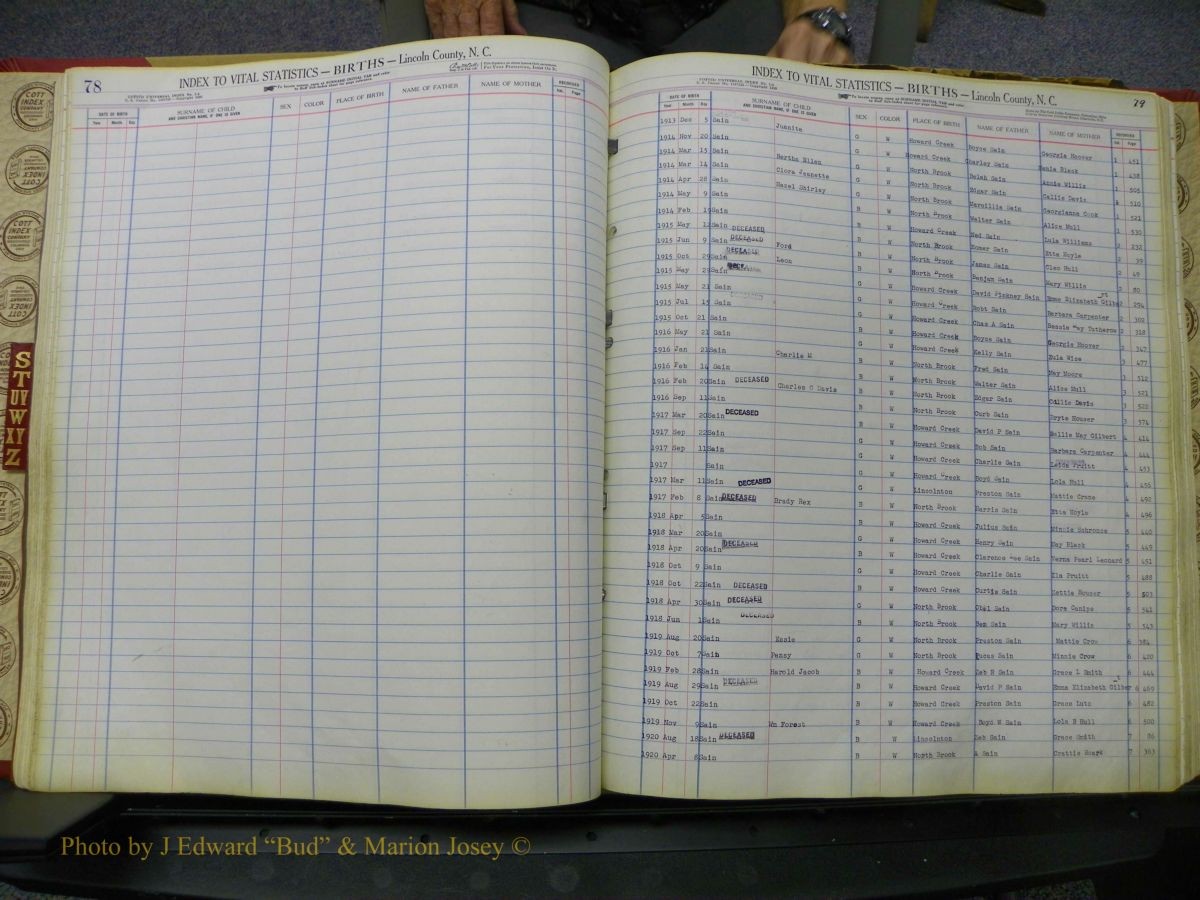 78
INDEX TO VITAL STATISTICS — BIRTHS — Lincoln County, N. C.
DATE OF BIRTH
Year Month Day
SURNAME OF CHILD
AND CHRISTIAN NAME, IF ONE IS GIVEN
SEX COLOR PLACE OF BIRTH NAME OF FATHER NAME OF MOTHER RECORDED
Vol. Page
COTT INDEX COMPANY
S
T
UV
W
XY
Z
INDEX TO VITAL STATISTICS — BIRTHS — Lincoln County, N. C.
79
DATE OF BIRTH
Year Month Day
SURNAME OF CHILD
AND CHRISTIAN NAME, IF ONE IS GIVEN
SEX COLOR PLACE OF BIRTH NAME OF FATHER NAME OF MOTHER RECORDED
Vol. Page
1913 Dec 5 Sain Juanita G W Howard Creek Boyce Sain Georgia Hoover 1 451
1914 Nov 20 Sain G W Howard Creek Charley Sain Black 1 438
1914 Mar 15 Sain Bertha Ellen G W North Brook Sain Annie Willis 1 505
1914 Mar 14 Sain Clora Jeanette G W North Brook Edgar Sain Callie Davis 510
1914 Apr 28 Sain Hazel Shirley G W North Brook Sain Georgianna Cook 1 521
1914 May 9 Sain G W North Brook Walter Sain Alice Mull 1 530
1914 Feb Sain B W Howard Creek Ned Sain Lula Williams 2 232
1915 May 12 Sain DECEASED B W North Brook Homer Sain Etta Hoyle 2 39
1915 Jun 9 Sain DECEASED Ford B W North Brook James Sain Cleo Hull 2 49
1915 Oct 29 Sain DECEASED Leon B W North Brook Sain Mary Willis 2 80
1915 May 29 Sain G W Howard Creek David Pinkney Sain Emma Elizabeth 2 294
1915 May 21 Sain G W Howard Creek Robt Sain Barbara Carpenter 2 302
1915 Jul 15 Sain B W Howard Creek Chas A Sain Bessie May Tutherow 2 318
1915 Oct 21 Sain G W Howard Creek Boyce Sain Georgia Hoover 2 347
1916 May 21 Sain G W Howard Creek Kelly Sain Eula Wise 3 477
1916 Jan 21 Sain Charlie M B W North Brook Fred Sain May Moore 3 512
1916 Feb 14 Sain B W North Brook Walter Sain Alice Mull 3 521
1916 Feb 20 Sain DECEASED Charles O Davis B W North Brook Edgar Sain Callie Davis 3 522
1916 Sep 11 Sain B W North Brook Curb Sain Houser 3 574
1917 Mar 20 Sain DECEASED B W Howard Creek David P Sain May Gilbert 4 414
1917 Sep 22 Sain G W Howard Creek Bob Sain Barbara Carpenter 4 444
1917 Sep 11 Sain G W Howard Creek Charlie Sain Pruitt 4 453
1917 Sain G W Howard Creek Boyd Sain Lola Hull 4
1917 Mar 11 Sain DECEASED G W Lincolnton Preston Sain Mattie Crane 4 492
1917 Feb 8 Sain DECEASED Brady Rex B W North Brook Harris Sain Etta Hoyle 4 496
1918 Apr 5 Sain B W Howard Creek Julius Sain Minnie Schronce 5 440
1918 Mar 20 Sain G W Howard Creek Henry Sain May Black 5 449
1918 Apr 20 Sain DECEASED B W Howard Creek Clarence Lee Sain Verna Pearl Leonard 5 451
1918 Oct 9 Sain G W Howard Creek Charlie Sain Ila Pruitt 5 488
1918 Oct 22 Sain DECEASED B W Howard Creek Curtis Sain Houser 5 503
1918 Apr 30 Sain DECEASED G W North Brook Sain Dora Canipe 5 541
1918 Jun 1 Sain DECEASED B W North Brook Ben Sain Mary Willis 5 543
1919 Aug 20 Sain Essie G W North Brook Preston Sain Mattie Crow 6 384
1919 Oct 7 Sain Penny G W North Brook Sain Minnie Crow 6 420
1919 Feb 28 Sain Harold Jacob B W Howard Creek Zeb B Sain Grace L Smith 6 444
1919 Aug 29 Sain DECEASED B W Howard Creek David P Sain Emma Elizabeth 6 469
1919 Oct 22 Sain B W Howard Creek Preston Sain Grace Lutz 6 482
1919 Nov 9 Sain Wm Forest B W Howard Creek Boyd W Sain Lola B Hull 6 500
1920 Aug 18 Sain DECEASED B W Lincolnton Zeb Sain Grace Smith 7 86
1920 Apr 8 Sain B W North Brook A Sain Crattie Hoark 7 363
Photo by J Edward “Bud” & Marion Josey ©